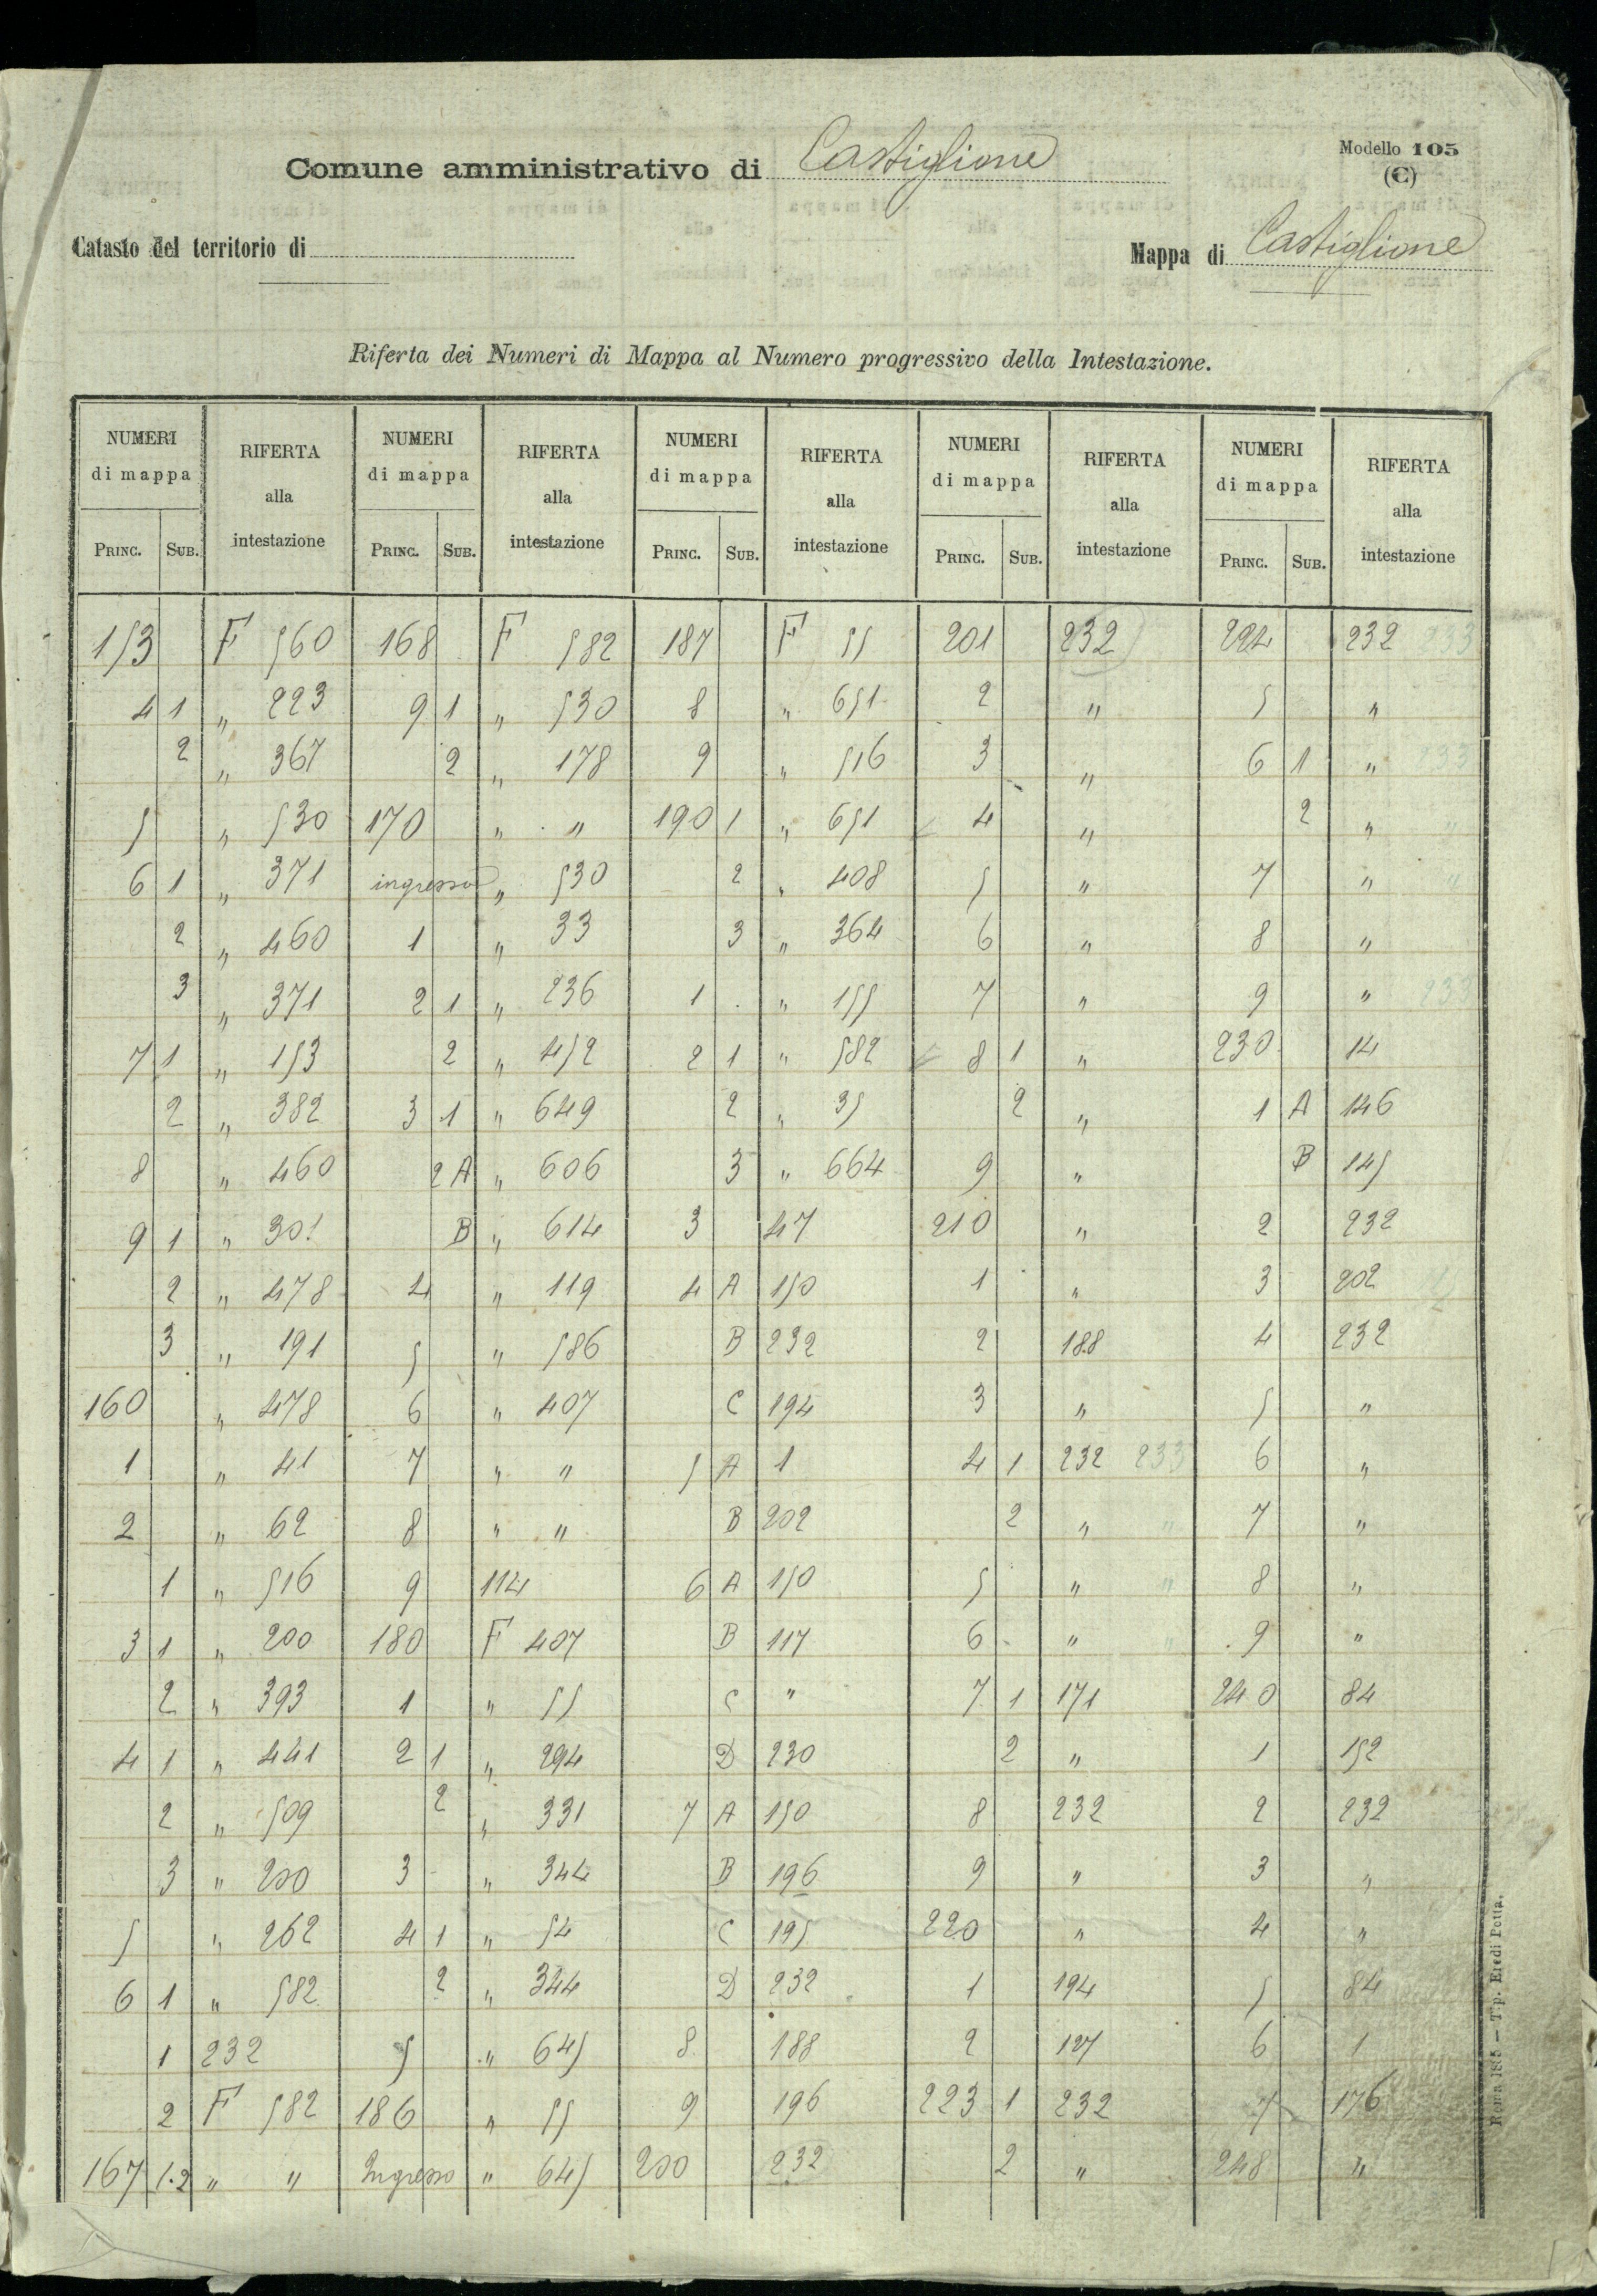 Comune amministrativo di Castiglione
Modello 105
(C)
Catasto del territorio di
Mappa di Castiglione
Riferta dei Numeri di Mappa al Numero progressivo della Intestazione.
NUMERI RIFERTA NUMERI RIFERTA NUMERI RIFERTA NUMERI RIFERTA NUMERI RIFERTA
di mappa alla di mappa alla di mappa alla di mappa alla di mappa alla
PRINC. SUB. intestazione PRINC. SUB. intestazione PRINC. SUB. intestazione PRINC. SUB. intestazione PRINC. SUB. intestazione
153 F 560 168 F 582 187 F 55 201 232 224 232 233
4 1 " 223 9 1 " 530 8 " 651 2 " 5 "
2 " 367 2 " 178 9 " 516 3 " 6 1 " 233
5 " 530 170 " " 190 1 " 651 4 " 2 " "
6 1 " 371 ingresso " 530 2 " 408 5 " 7 " "
2 " 460 1 " 33 3 " 364 6 " 8 "
3 " 371 2 1 " 236 1 " 155 7 " 9 " 233
7 1 " 153 2 " 452 2 1 " 582 8 1 " 230 14
2 " 382 3 1 " 649 2 " 35 2 " 1 A 146
8 " 460 2 A " 606 3 " 664 9 " B 145
9 1 " 301 B " 614 3 47 210 " 2 232
2 " 478 4 " 119 4 A 150 1 " 3 202
3 " 191 5 " 586 B 232 2 188 4 232
160 " 478 6 " 407 C 194 3 " 5 "
1 " 41 7 " " 5 A 1 4 1 232 233 6 "
2 " 62 8 " " B 202 2 " " 7 "
1 " 516 9 114 6 A 150 5 " " 8 "
3 1 " 200 180 F 407 B 117 6 " " 9 "
2 " 393 1 " 55 C " 7 1 171 240 84
4 1 " 441 2 1 " 294 D 230 2 " 1 152
2 " 509 2 " 331 7 A 150 8 232 2 232
3 " 200 3 " 344 B 196 9 " 3 "
5 " 262 4 1 " 54 C 195 220 " 4 "
6 1 " 582 2 " 344 D 232 1 194 5 84
1 232 5 " 645 8 188 2 127 6 1
2 F 582 186 " 55 9 196 223 1 232 7 176
167 1.2 " " Ingresso " 645 200 232 2 " 248 "